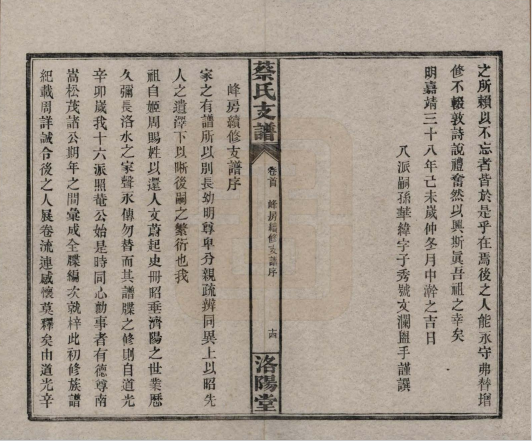 之所賴以不忘者皆於是乎在焉後之人能永守弗替增
修不輟敦詩說禮奮然以興斯眞吾祖之幸矣
明嘉靖三十八年己未歲仲冬月中澣之吉日
八派嗣孫華緯字子秀號文瀾盥手謹譔
蔡氏支譜
卷首
峰房續修支譜序
十四
洛陽堂
峰房續修支譜序
家之有譜所以別長幼明尊卑分親疏辨同異上以昭先
人之遺澤下以晰後嗣之繁衍也我
祖自姬周賜姓以還人文蔚起史冊昭垂濟陽之世業歷
久彌長洛水之家聲永傳勿替而其譜牒之修則自道光
辛卯歲我十六派照菴公始是時同心勷事者有德尊南
嵩松茂諸公期年之間彙成全牒編次就梓此初修族譜
紀載周詳誠令後之人展卷流連感懷莫釋矣由道光辛